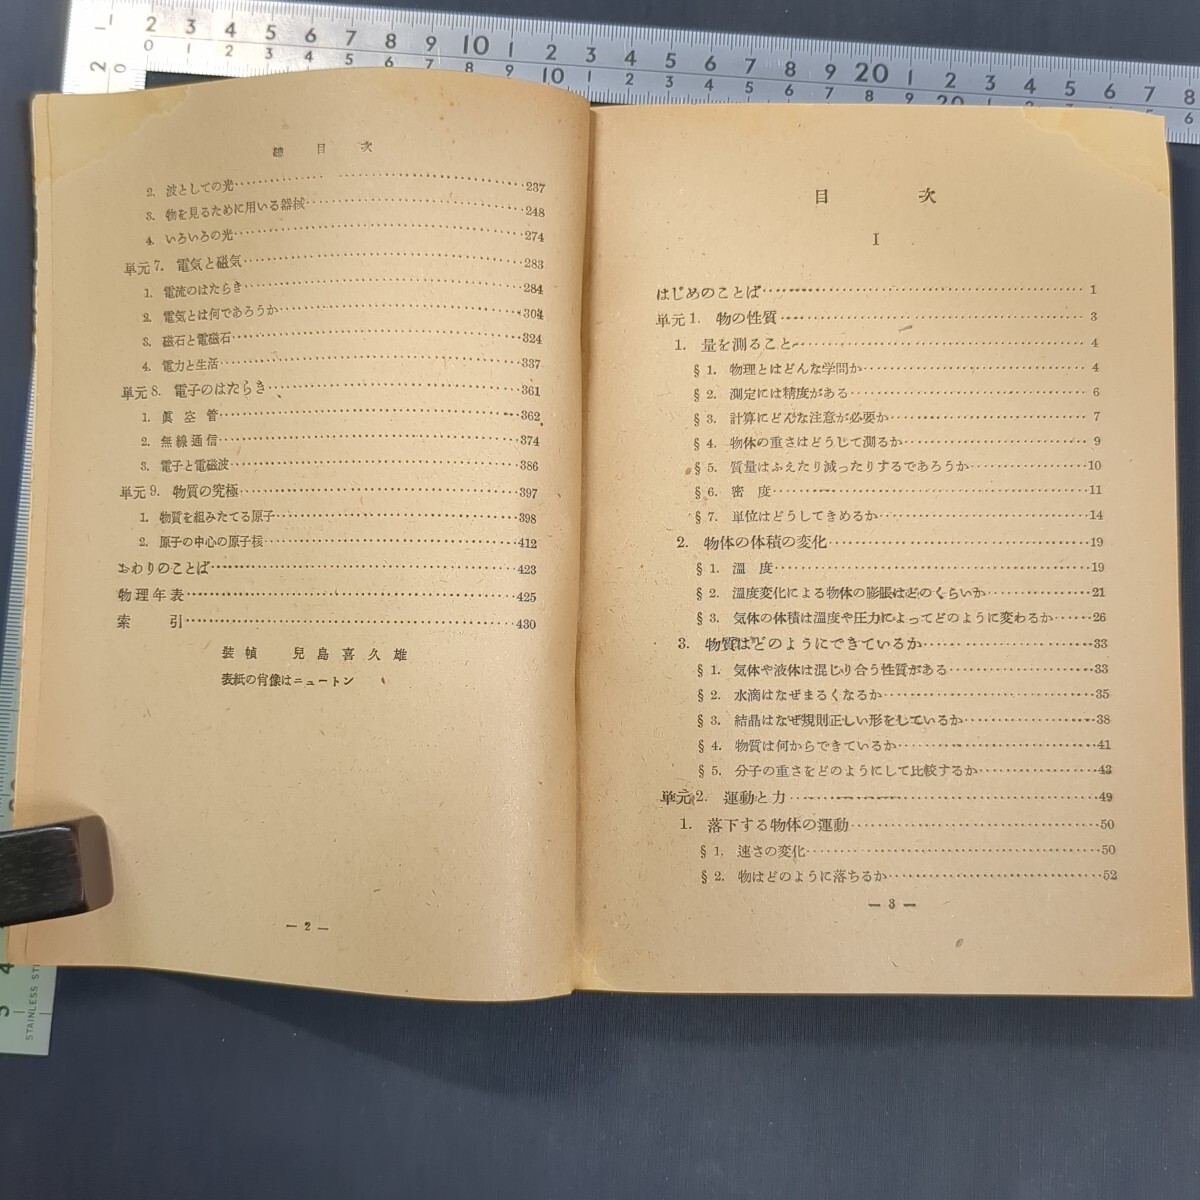 總目次
2. 波としての光 237
3. 物を見るために用いる器械 248
4. いろいろの光 274
単元7. 電気と磁気 283
1. 電流のはたらき 284
2. 電気とは何であろうか 304
3. 磁石と電磁石 324
4. 電力と生活 337
単元8. 電子のはたらき 361
1. 眞空管 362
2. 無線通信 374
3. 電子と電磁波 386
単元9. 物質の究極 397
1. 物質を組みたてる原子 398
2. 原子の中心の原子核 412
おわりのことば 423
物理年表 425
索引 430
裝幀 兒島喜久雄
表紙の肖像はニュートン
— 2 —
目次
I
はじめのことば 1
単元1. 物の性質 3
1. 量を測ること 4
§ 1. 物理とはどんな学問か 4
§ 2. 測定には精度がある 6
§ 3. 計算にどんな注意が必要か 7
§ 4. 物体の重さはどうして測るか 9
§ 5. 質量はふえたり減ったりするであろうか 10
§ 6. 密度 11
§ 7. 単位はどうしてきめるか 14
2. 物体の体積の変化 19
§ 1. 溫度 19
§ 2. 溫度変化による物体の膨脹はどのくらいか 21
§ 3. 気体の体積は溫度や圧力によってどのように変わるか 26
3. 物質はどのようにできているか 33
§ 1. 気体や液体は混じり合う性質がある 33
§ 2. 水滴はなぜまるくなるか 35
§ 3. 結晶はなぜ規則正しい形をしているか 38
§ 4. 物質は何からできているか 41
§ 5. 分子の重さをどのようにして比較するか 43
単元2. 運動と力 49
1. 落下する物体の運動 50
§ 1. 速さの変化 50
§ 2. 物はどのように落ちるか 52
— 3 —
1 2 3 4 5 6 7 8 9 10 1 2 3 4 5 6 7 8 9 20 1 2 3 4 5 6 7 8
0 1 2 3 4 5 6 7 8 9 10 1 2 3 4 5 6 7 8 9 20 1 2 3 4 5 6